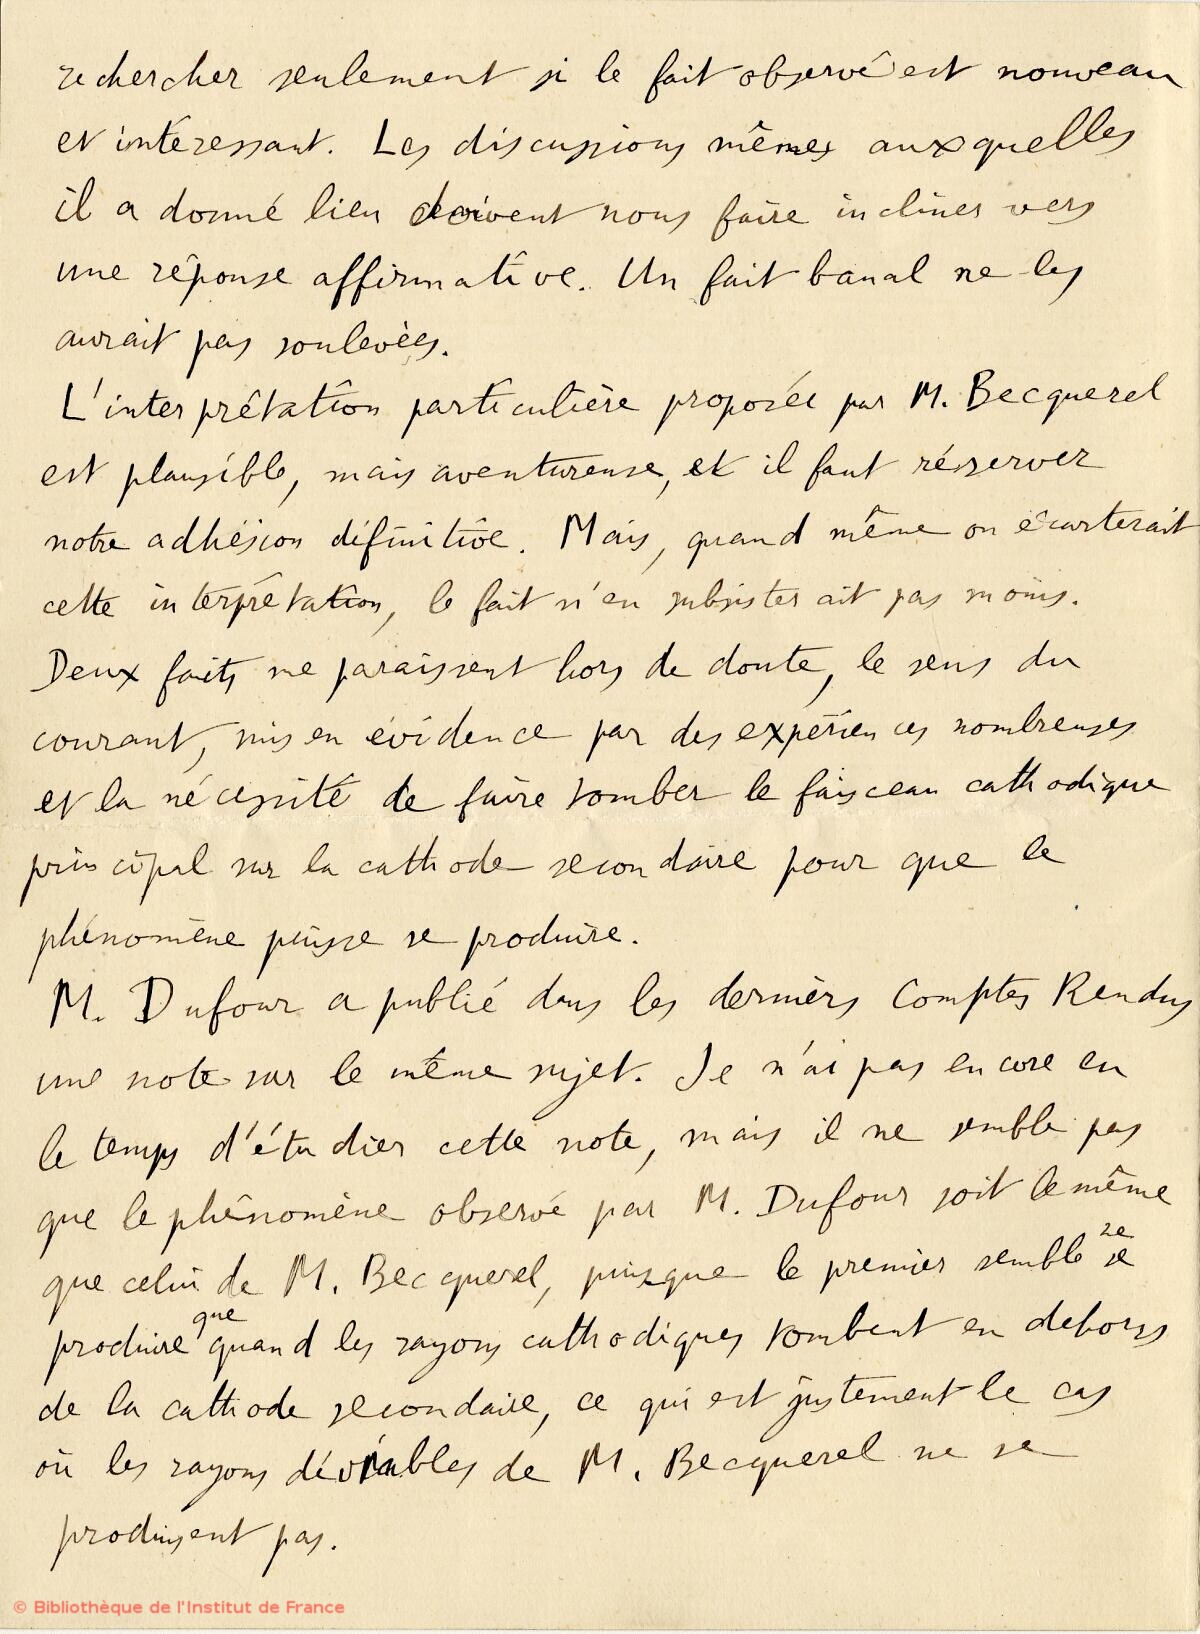 rechercher seulement si le fait observé est nouveau
et intéressant. Les discussions mêmes auxquelles
il a donné lieu doivent nous faire incliner vers
une réponse affirmative. Un fait banal ne les
aurait pas soulevées.
L'interprétation particulière proposée par M. Becquerel
est plausible, mais aventureuse, et il faut réserver
notre adhésion définitive. Mais, quand même on écarterait
cette interprétation, le fait n'en subsisterait pas moins.
Deux faits me paraissent hors de doute, le sens du
courant, mis en évidence par des expériences nombreuses
et la nécessité de faire tomber le faisceau cathodique
principal sur la cathode secondaire pour que le
phénomène puisse se produire.
M. Dufour a publié dans les derniers Comptes Rendus
une note sur le même sujet. Je n'ai pas encore eu
le temps d'étudier cette note, mais il ne semble pas
que le phénomène observé par M. Dufour soit le même
que celui de M. Becquerel, puisque le premier semble ne se
produire que quand les rayons cathodiques tombent en dehors
de la cathode secondaire, ce qui est justement le cas
où les rayons déviables de M. Becquerel ne se
produisent pas.
© Bibliothèque de l'Institut de France